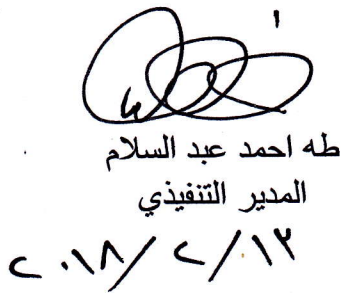 طه احمد عبد السلام
المدير التنفيذي
٢٠١٨/٢/١٣